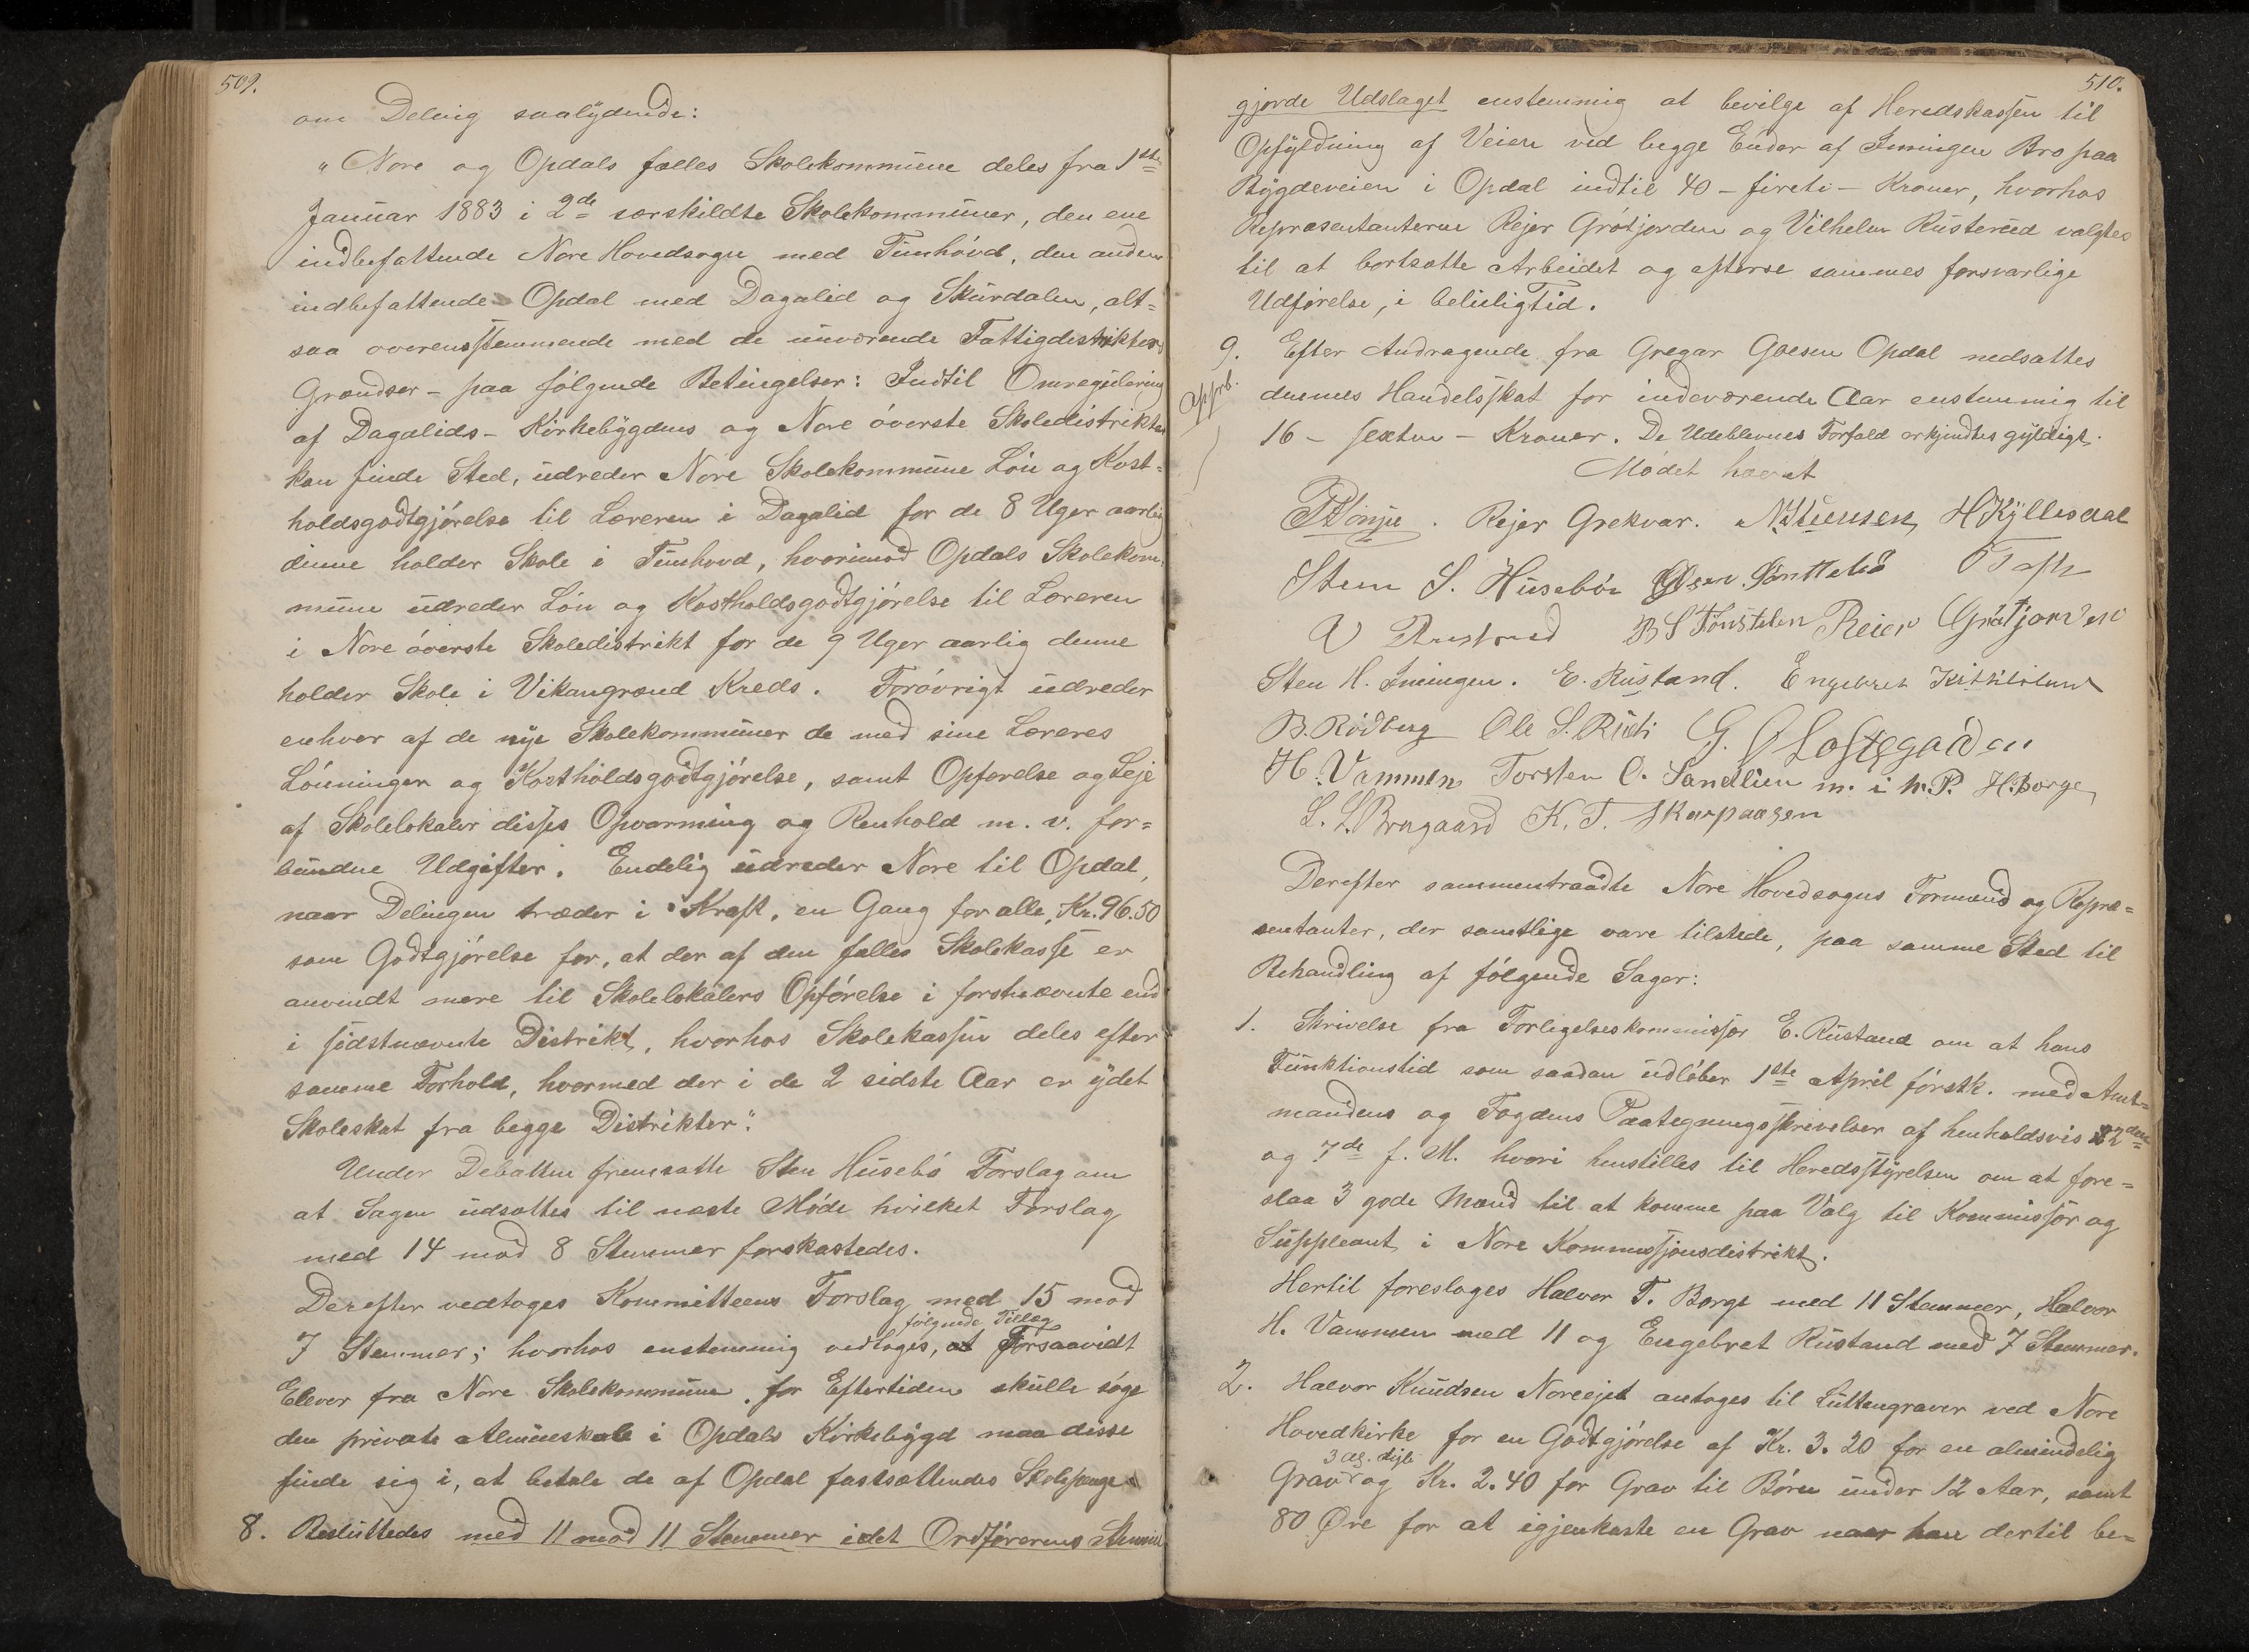 509.
om Deling saalydende:
"Nore og Opdals fælles Skolekommune deles fra 1ste
Januar 1883 i 2de særskildte Skolekommuner, den ene
indbefattende Nore Hovedsogn med Tunhövd, den anden
indbefattende Opdal med Dagalid og Skurdalen, alt=
saa overensstemmende med de nuværende Fattigdistrikters
Grændser - paa følgende Betingelser: Indtil Omregulering
af Dagalids- Kirkebygdens og Nore överste Skoledistrikter
kan finde Sted, udreder Nore Skolekommune Lön og Kost=
holdsgodtgjörelse til Læreren i Dagalid for de 8 Uger aarlig
denne holder Skole i Tunhovd, hvorimod Opdals Skolekom=
mune udreder Lön og Kostholdsgodtgjörelse til Læreren
i Nore överste Skoledistrikt for de 9 Uger aarlig denne
holder Skole i Vikangrænd Kreds. Forövrigt udreder
enhver af de nye Skolekommuner de med sine Læreres
Lönninger og Kostholdsgodtgjörelse, samt Opförelse og Leje
af Skolelokaler disses Opvarming og Renhold m. v. for=
bundne Udgifter. Endelig udreder Nore til Opdal,
naar Delingen træder i Kraft, en Gang for alle, Kr. 96.50
som Godtgjörelse for, at der af den fælles Skolekasse er
anvendt mere til Skolelokalers Opförelse i förstnævnte end
i sidstnævnte Distrikt, hvorhos Skolekassen deles efter
samme Forhold, hvormed der i de 2 sidste Aar er ydet
Skoleskat fra begge Distrikter".
Under Debatten fremsatte Sten Husebö Forslag om
at Sagen udsættes til næste Möde hvilket Forslag
med 14 mod 8 Stemmer forkastedes.
Derefter vedtoges Kommitteens Forslag med 15 mod
følgende Tillæg
7 Stemmer; hvorhos enstemmig vedtoges, at Forsaavidt
Elever fra Nore Skolekommune for Eftertiden skulle söge
den private Almueskole i Opdals Kirkebygd maa disse
finde sig i, at betale de af Opdal fastsættendes Skolepenge
8. Besluttedes med 11 mod 11 Stemmer idet Ordförerens Stemme
510.
gjorde Udslaget enstemmig at bevilge af Heredskassen til
Opfyldning af Veien ved begge Ender af Imingen Bro paa
Bygdeveien i Opdal indtil 40 - firti - Kroner, hvorhos
Repræsentanterne Rejer Grötjorden og Vilhelm Rusterud valgtes
til at bortsætte Arbeidet og efterse sammes forsvarlige
Udförelse, i beleiligTid.
9. Efter Andragende fra Gregar Goesen Opdal nedsattes
Apprb.
dennes Handelsskat for indeværende Aar enstemmig til
16 - sexten - Kroner. De Udeblevnes Forfald erkjendtes gyldigt.
Mödet hævet
Rejer Grekvar. H Kyllesdal
Sten S. Husebön
B S Tönstelen Reier Grötjorden
Sten H. Imingen. E. Rustand. Engebret
B. Rödberg Ole S. Rudi G. O
H. Vammen Torsten O. Sandlien m. i h. P. H. Borge
L. L. Bragaard K. T. Skarpaasen
Derefter sammentraadte Nore Hovedsogns Formænd og Repræ=
sentanter, der samtlige vare tilstede, paa samme Sted til
Behandling af fölgende Sager:
1. Skrivelse fra Forligelseskommissær E. Rustand om at hans
Funktionstid som saadan udlöber 1ste April förstk. med Amt=
mandens og Fogdens Paategningsskrivelser af henholdsvis 22den
og 7de f. M. hvori henstilles til Heredsstyrelsen om at fore=
slaa 3 gode Mænd til at komme paa Valg til Kommissær og
Suppleant i Nore Kommissjonsdistrikt.
Hertil foresloges Halvor T. Borge med 11 Stemmer, Halvor
H. Vammen med 11 og Engebret Rustand med 7 Stemmer.
2. Halvor Knudsen Noreejet antoges til Luttengraver ved Nore
Hovedkirke for en Godtgjörelse af Kr. 3.20 for en almindelig
3 al. dyb
Grav og Kr. 2.40 for Grav til Börn under 12 Aar, samt
80 Øre for at igjenkaste en Grav naar han dertil be=